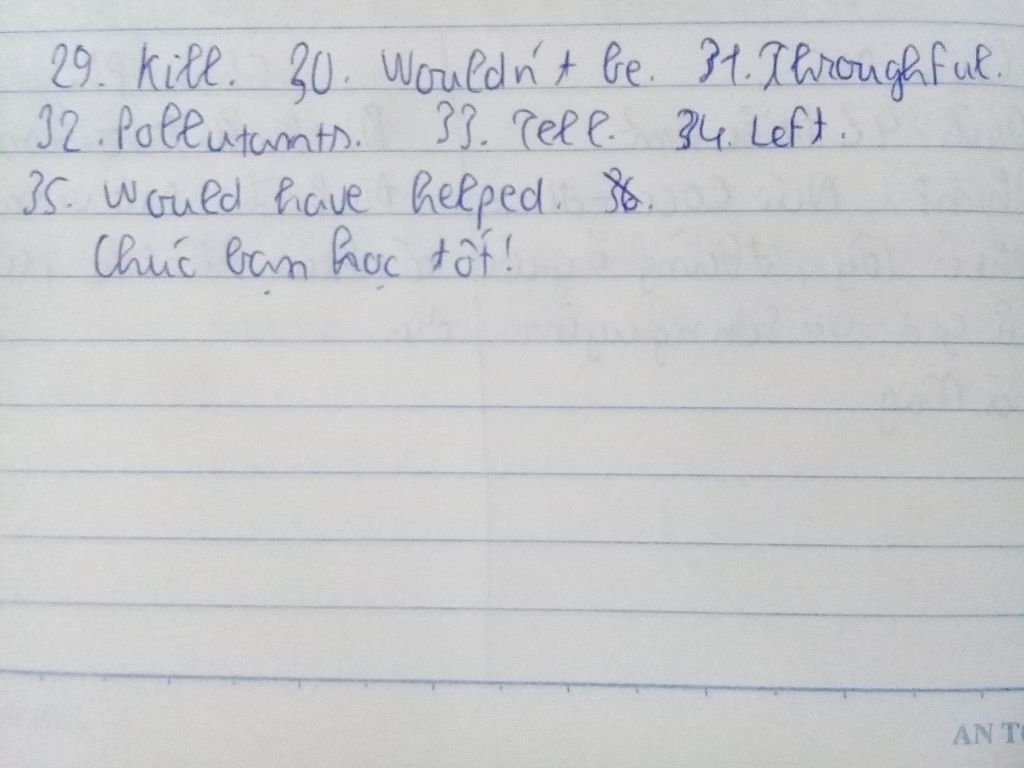 29. Kill. 30. Wouldn't be. 31. Throughful.
32. Pollutants. 33. Tell. 34. Left.
35. Would have helped. 36.
Chúc bạn học tốt!
AN T